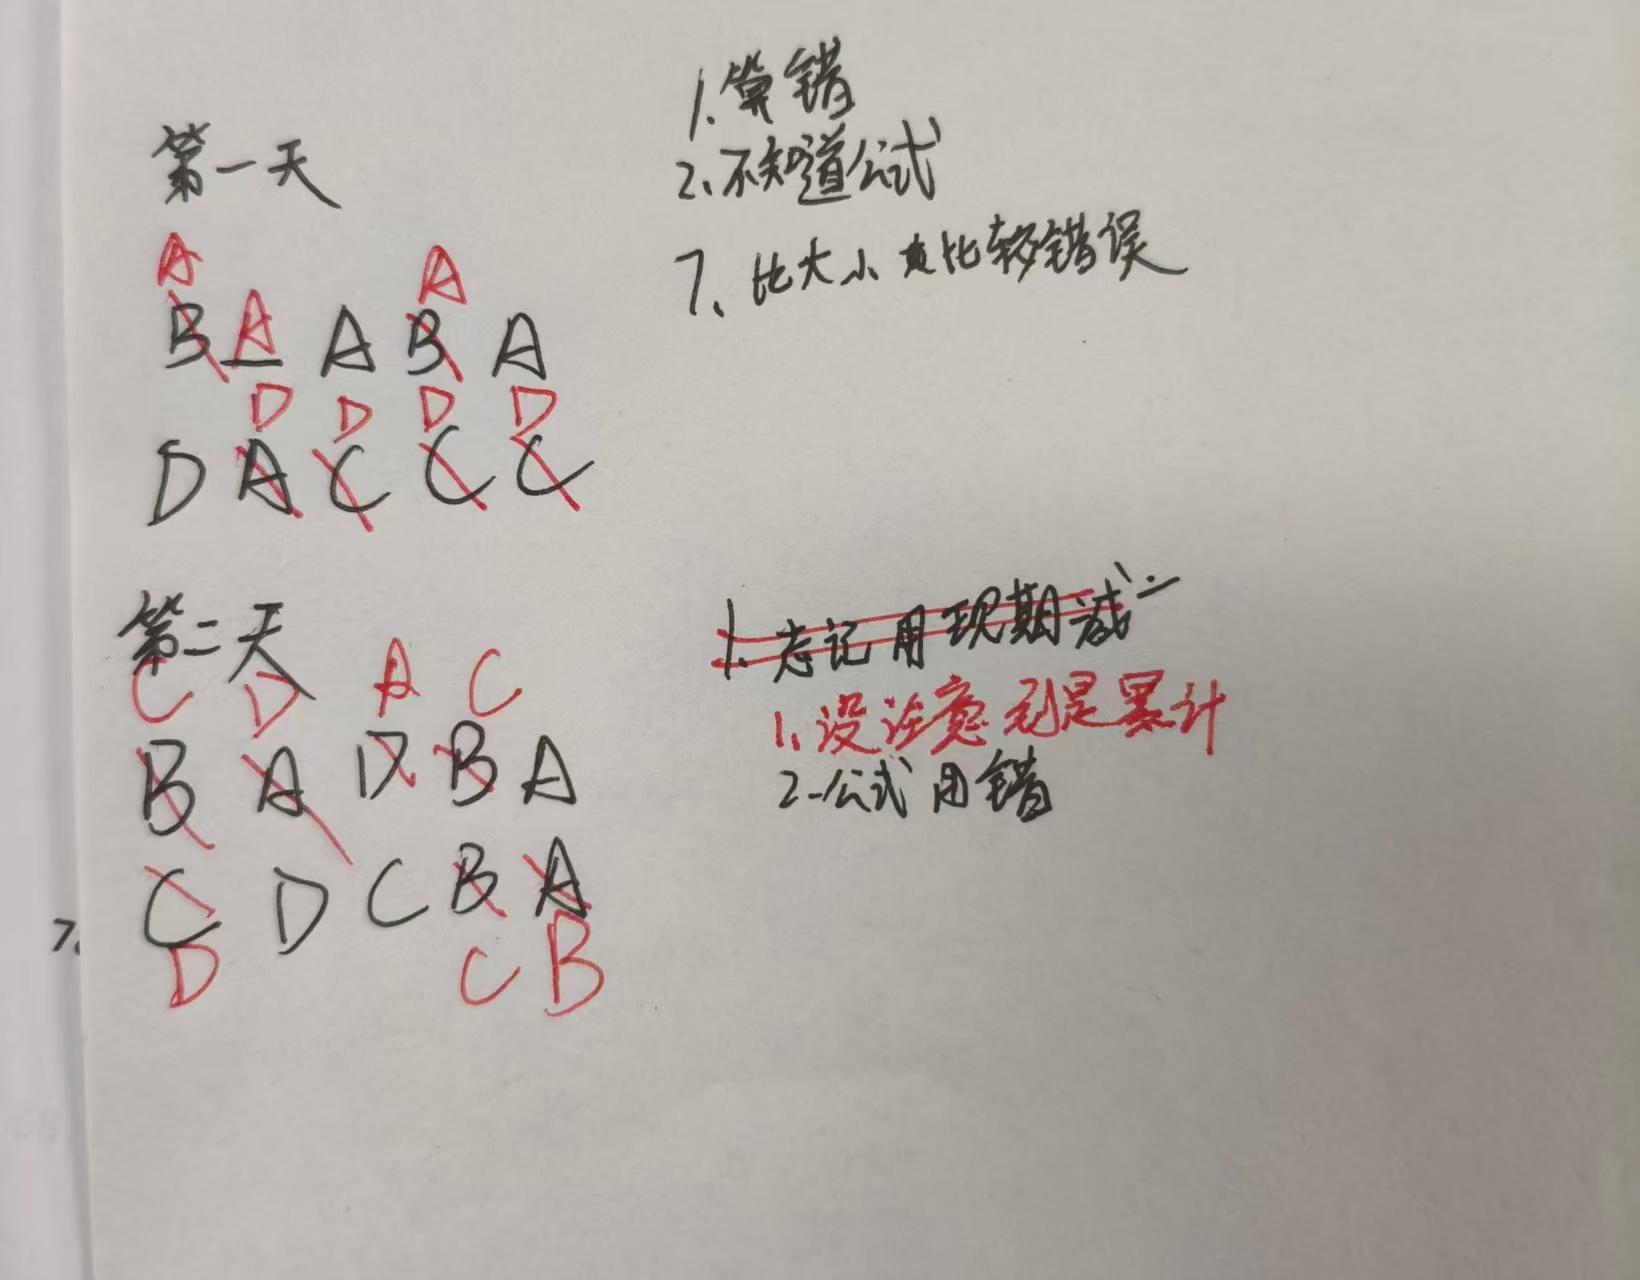 第一天
1.算错
2、不知道公式
7、比大小 比较错误
A A
B A A B A
D D D D
D A C C C
第二天
1.忘记用现期减
1.没注意到是累计
2.公式用错
C D A C
B A D B A
C D C B A
D C B
7.